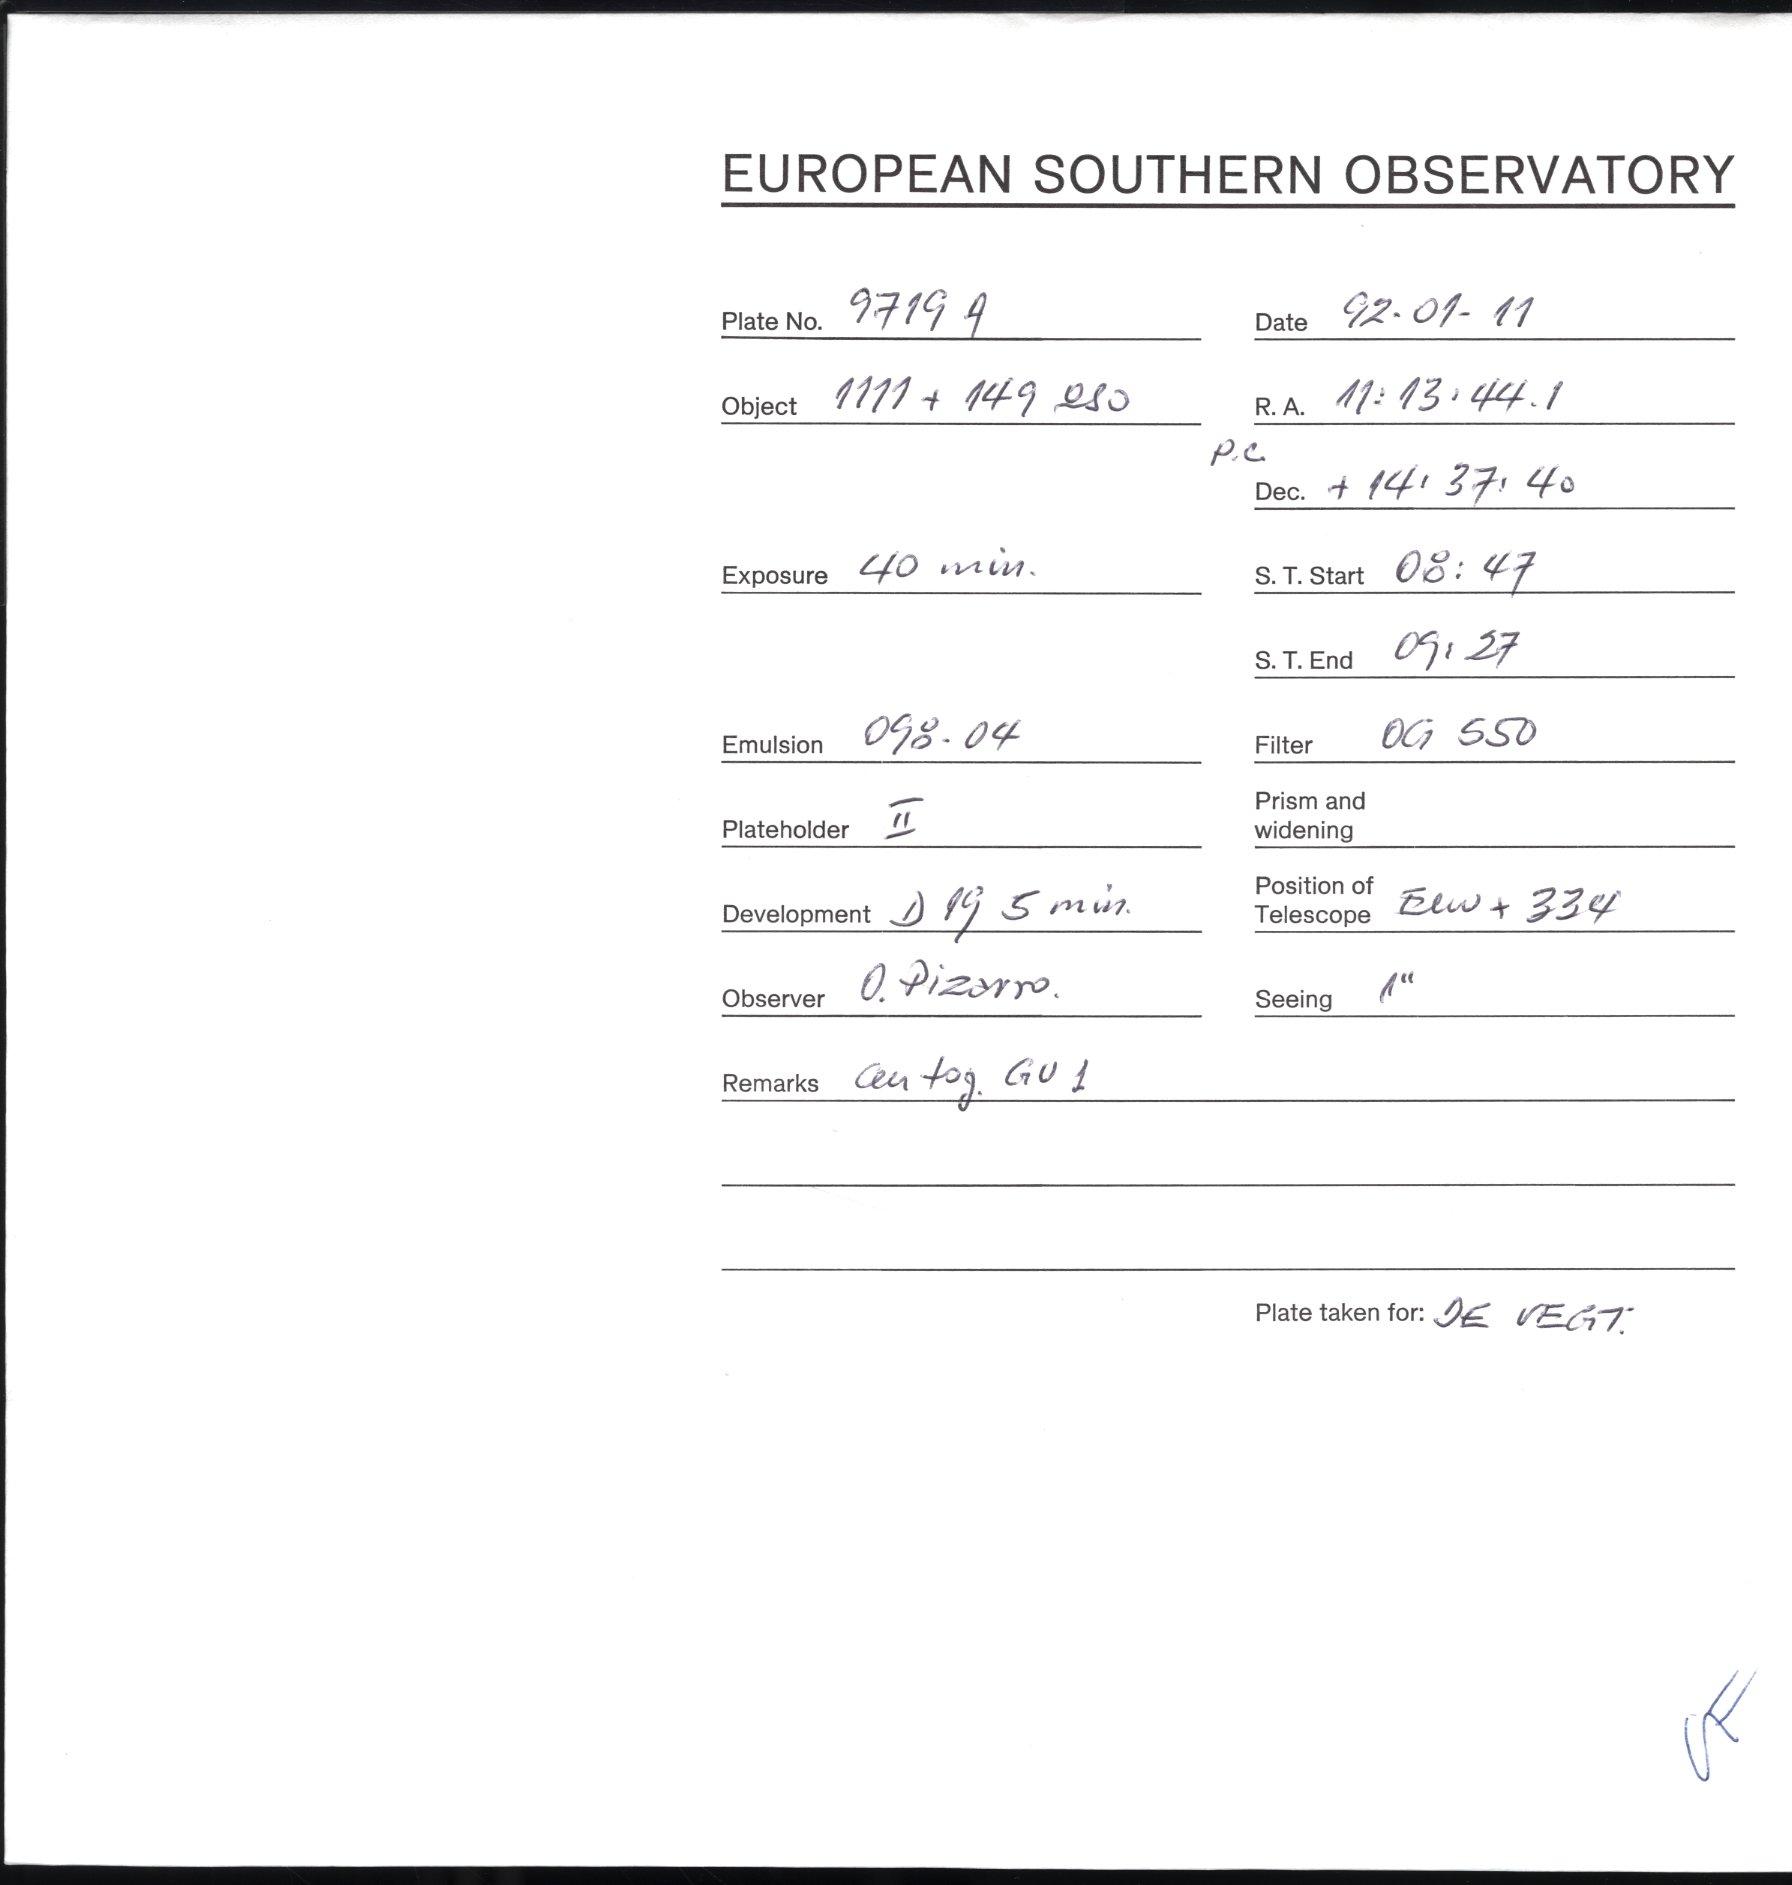 EUROPEAN SOUTHERN OBSERVATORY
Plate No. 9719 A
Date 92-01-11
Object 1111 + 149 QSO
R. A. 11: 13: 44.1
P.C.
Dec. + 14: 37: 40
Exposure 40 min.
S. T. Start 08: 47
S. T. End 09: 27
Emulsion 098-04
Filter OG 550
Plateholder II
Prism and
widening
Development D 19 5 min.
Position of
Telescope + 334
Observer O. Pizarro.
Seeing 1"
Remarks GV 1
Plate taken for: DE VEGT.